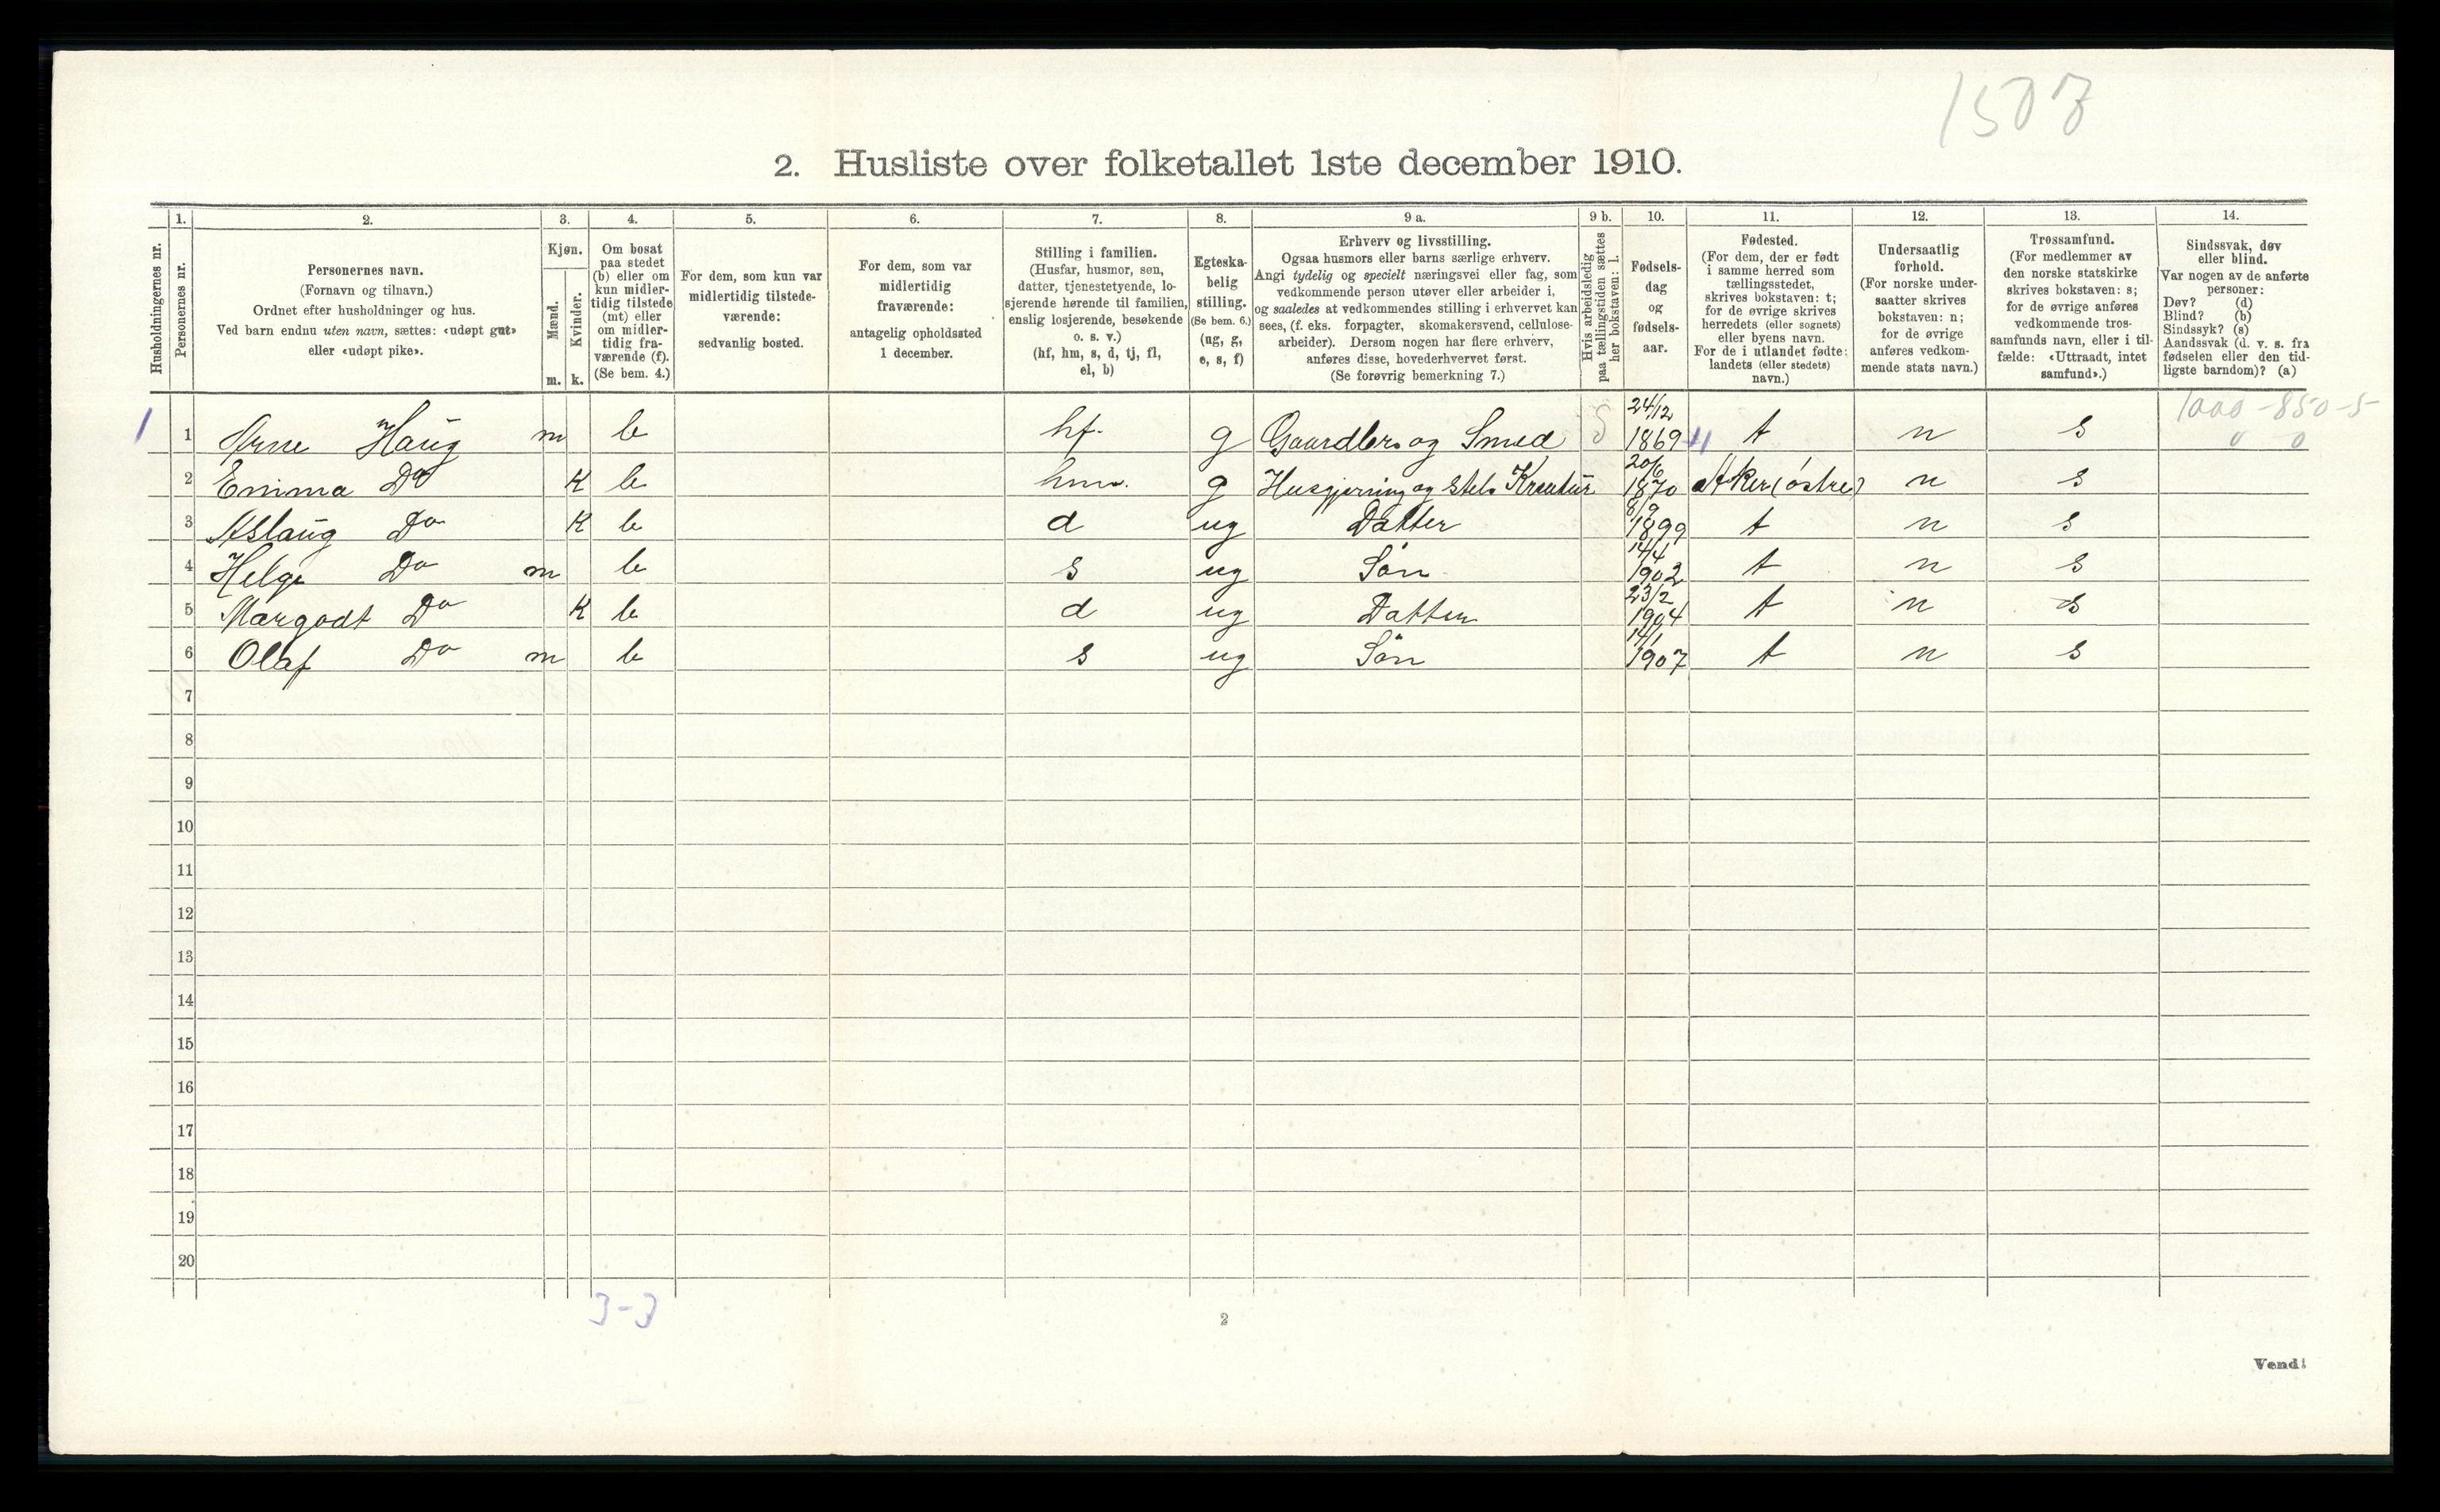 1507
2. Husliste over folketallet 1ste december 1910.
Husholdningernes nr.
1.
Personernes nr.
2.
Personernes navn.
(Fornavn og tilnavn.)
Ordnet efter husholdninger og hus.
Ved barn endnu uten navn, sættes: «udøpt gut»
eller «udøpt pike».
3.
Kjøn.
Mænd.
m.
Kvinder.
k.
4.
Om bosat
paa stedet
(b) eller om
kun midler-
tidig tilstede
(mt) eller
om midler-
tidig fra-
værende (f).
(Se bem. 4.)
5.
For dem, som kun var
midlertidig tilstede-
værende:
sedvanlig bosted.
6.
For dem, som var
midlertidig
fraværende:
antagelig opholdssted
1 december.
7.
Stilling i familien.
(Husfar, husmor, søn,
datter, tjenestetyende, lo-
sjerende hørende til familien,
enslig losjerende, besøkende
o. s. v.)
(hf, hm, s, d, tj, fl,
el, b)
8.
Egteska-
belig
stilling.
(Se bem. 6.)
(ug, g,
e, s, f)
9 a.
Erhverv og livsstilling.
Ogsaa husmors eller barns særlige erhverv.
Angi tydelig og specielt næringsvei eller fag, som
vedkommende person utøver eller arbeider i,
og saaledes at vedkommendes stilling i erhvervet kan
sees, (f. eks. forpagter, skomakersvend, cellulose-
arbeider). Dersom nogen har flere erhverv,
anføres disse, hovederhvervet først.
(Se forøvrig bemerkning 7.)
9 b.
Hvis arbeidsledig
paa tællingstiden sættes
her bokstaven: l.
10.
Fødsels-
dag
og
fødsels-
aar.
11.
Fødested.
(For dem, der er født
i samme herred som
tællingsstedet,
skrives bokstaven: t;
for de øvrige skrives
herredets (eller sognets)
eller byens navn.
For de i utlandet fødte:
landets (eller stedets)
navn.)
12.
Undersaatlig
forhold.
(For norske under-
saatter skrives
bokstaven: n;
for de øvrige
anføres vedkom-
mende stats navn.)
13.
Trossamfund.
(For medlemmer av
den norske statskirke
skrives bokstaven: s;
for de øvrige anføres
vedkommende tros-
samfunds navn, eller i til-
fælde: «Uttraadt, intet
samfund».)
14.
Sindssvak, døv
eller blind.
Var nogen av de anførte
personer:
Døv? (d)
Blind? (b)
Sindssyk? (s)
Aandssvak (d. v. s. fra
fødselen eller den tid-
ligste barndom)? (a)
1 1 Arne Haug m b hf. g og Smed 24/12 1869 t n s 1000-850-5 0 0
2 Emma Do K b hm. g Husgjerning og Stels Kreatur 20/6 1870 Aker (østre) n s
3 Aslaug Do K b d ug Datter 8/9 1899 t n s
4 Helge Do m b s ug Søn 14/4 1902 t n s
5 Margodt Do K b d ug Datter 23/2 1904 t n s
6 Olaf Do m b s ug Søn 14/1 1907 t n s
7
8
9
10
11
12
13
14
15
16
17
18
19
20
3-3
2
Vend!